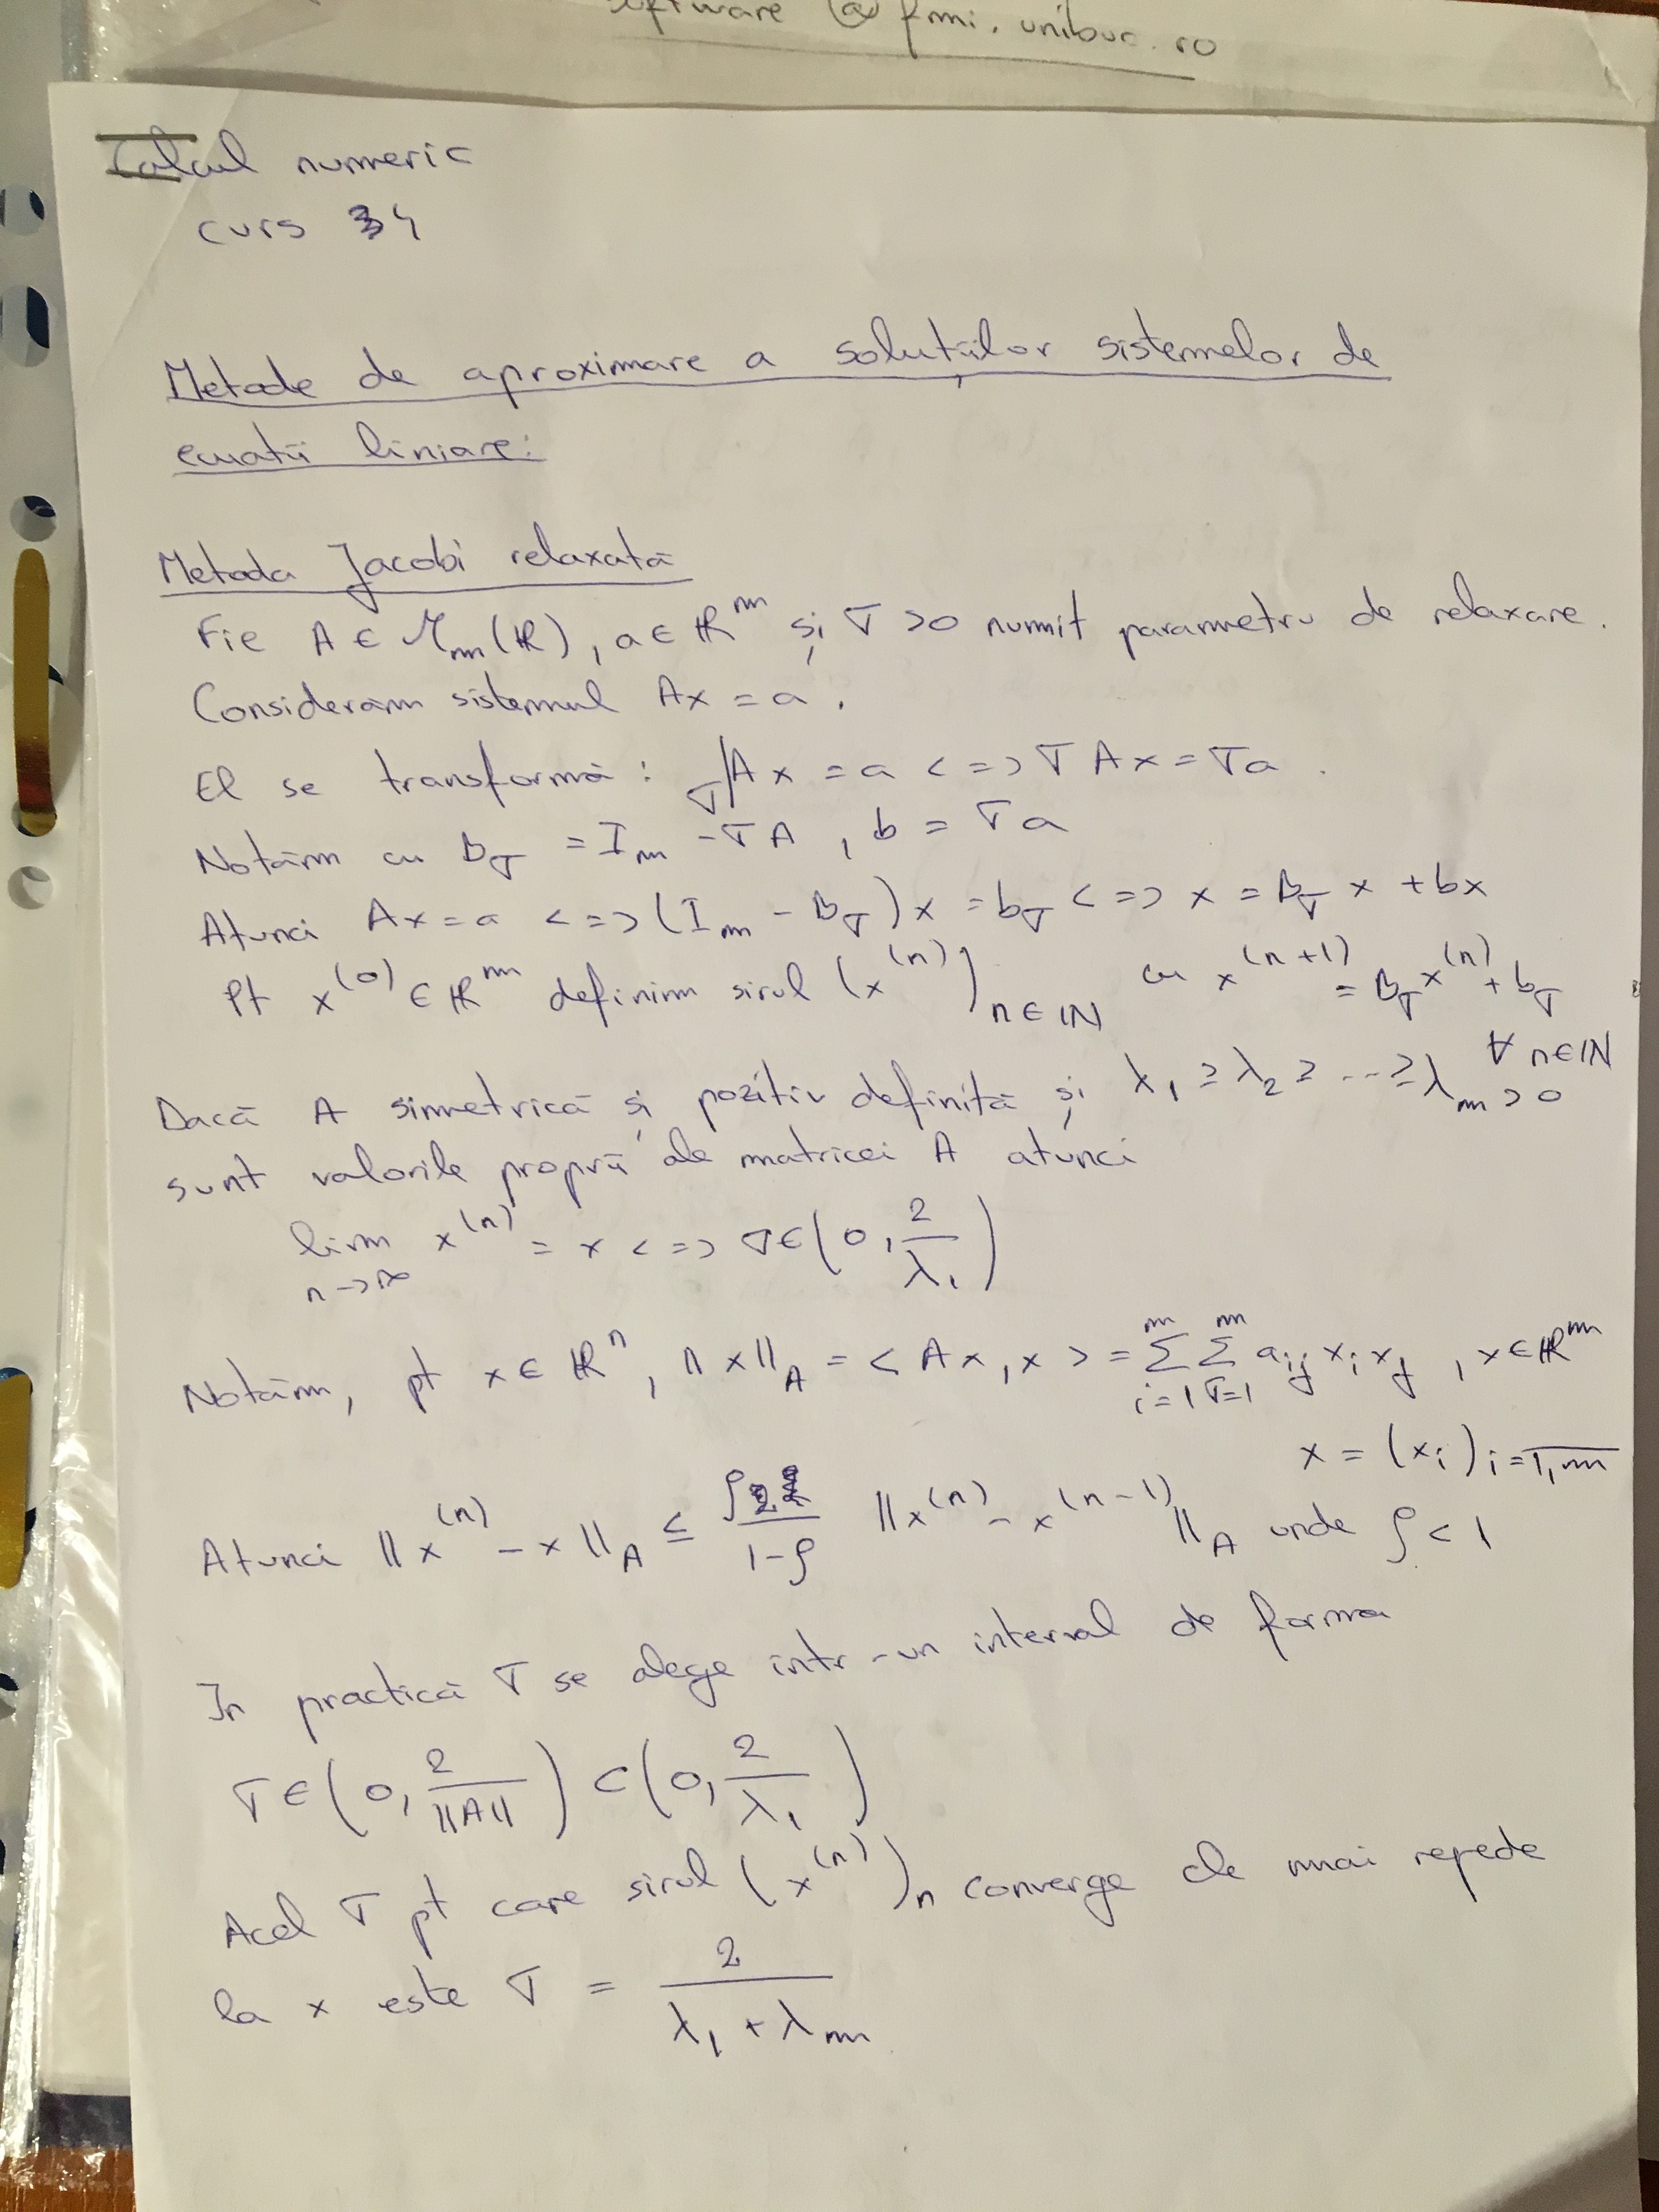 software @ fmi.unibuc.ro
Calcul numeric
curs 4
Metode de aproximare a soluțiilor sistemelor de
ecuatii liniare:
Metoda Jacobi relaxată
Fie A ∈ M_m(ℝ), a ∈ ℝ^m și σ > 0 numit parametru de relaxare.
Considerăm sistemul Ax = a.
El se transformă: σ| Ax = a <=> σAx = σa.
Notăm cu B_σ = I_m - σA, b = σa
Atunci Ax = a <=> (I_m - B_σ)x = b_σ <=> x = B_σ x + bx
Pt x^(0) ∈ ℝ^m definim sirul (x^(n))_{n∈ℕ} cu x^(n+1) = B_σ x^(n) + b_σ
∀ n∈ℕ
Dacă A simetrică și pozitiv definită și λ_1 ≥ λ_2 ≥ ... ≥ λ_m > 0
sunt valorile proprii ale matricei A atunci
lim_{n->∞} x^(n) = x <=> σ ∈ (0, 2/λ_1)
Notăm, pt x ∈ ℝ^n, ||x||_A = <Ax, x> = Σ_{i=1}^m Σ_{j=1}^m a_ij x_i x_j, x ∈ ℝ^m
x = (x_i)_{i=1,m}
Atunci ||x^(n) - x||_A ≤ ρ/(1-ρ) ||x^(n) - x^(n-1)||_A unde ρ < 1
In practică σ se alege intr-un interval de forma
σ ∈ (0, 2/||A||) ⊂ (0, 2/λ_1)
Acel σ pt care sirul (x^(n))_n converge cle mai repede
la x este σ = 2/(λ_1 + λ_m)